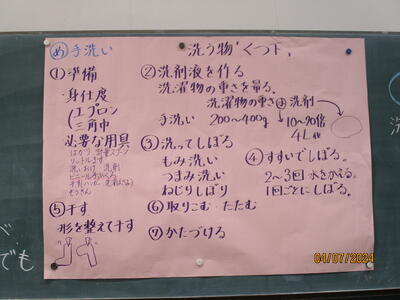 め 手洗い
洗う物"くつ下"
①準備
・身仕度
(エプロン
三角巾
必要な用具
はかり 計量スプーン
リットルます
洗いおけ 洗剤
ぞうきん
②洗剤液を作る
洗濯物の重さを量る。
洗濯物の重さ 洗剤
手洗い 200〜400g → 10〜20倍
4L
③洗ってしぼる
もみ洗い
つまみ洗い
ねじりしぼり
④すすいでしぼる。
2〜3回 水をかえる。
1回ごとにしぼる。
⑤干す
形を整えて干す
⑥取りこむ・たたむ
⑦かたづける
でも
04/07/2024